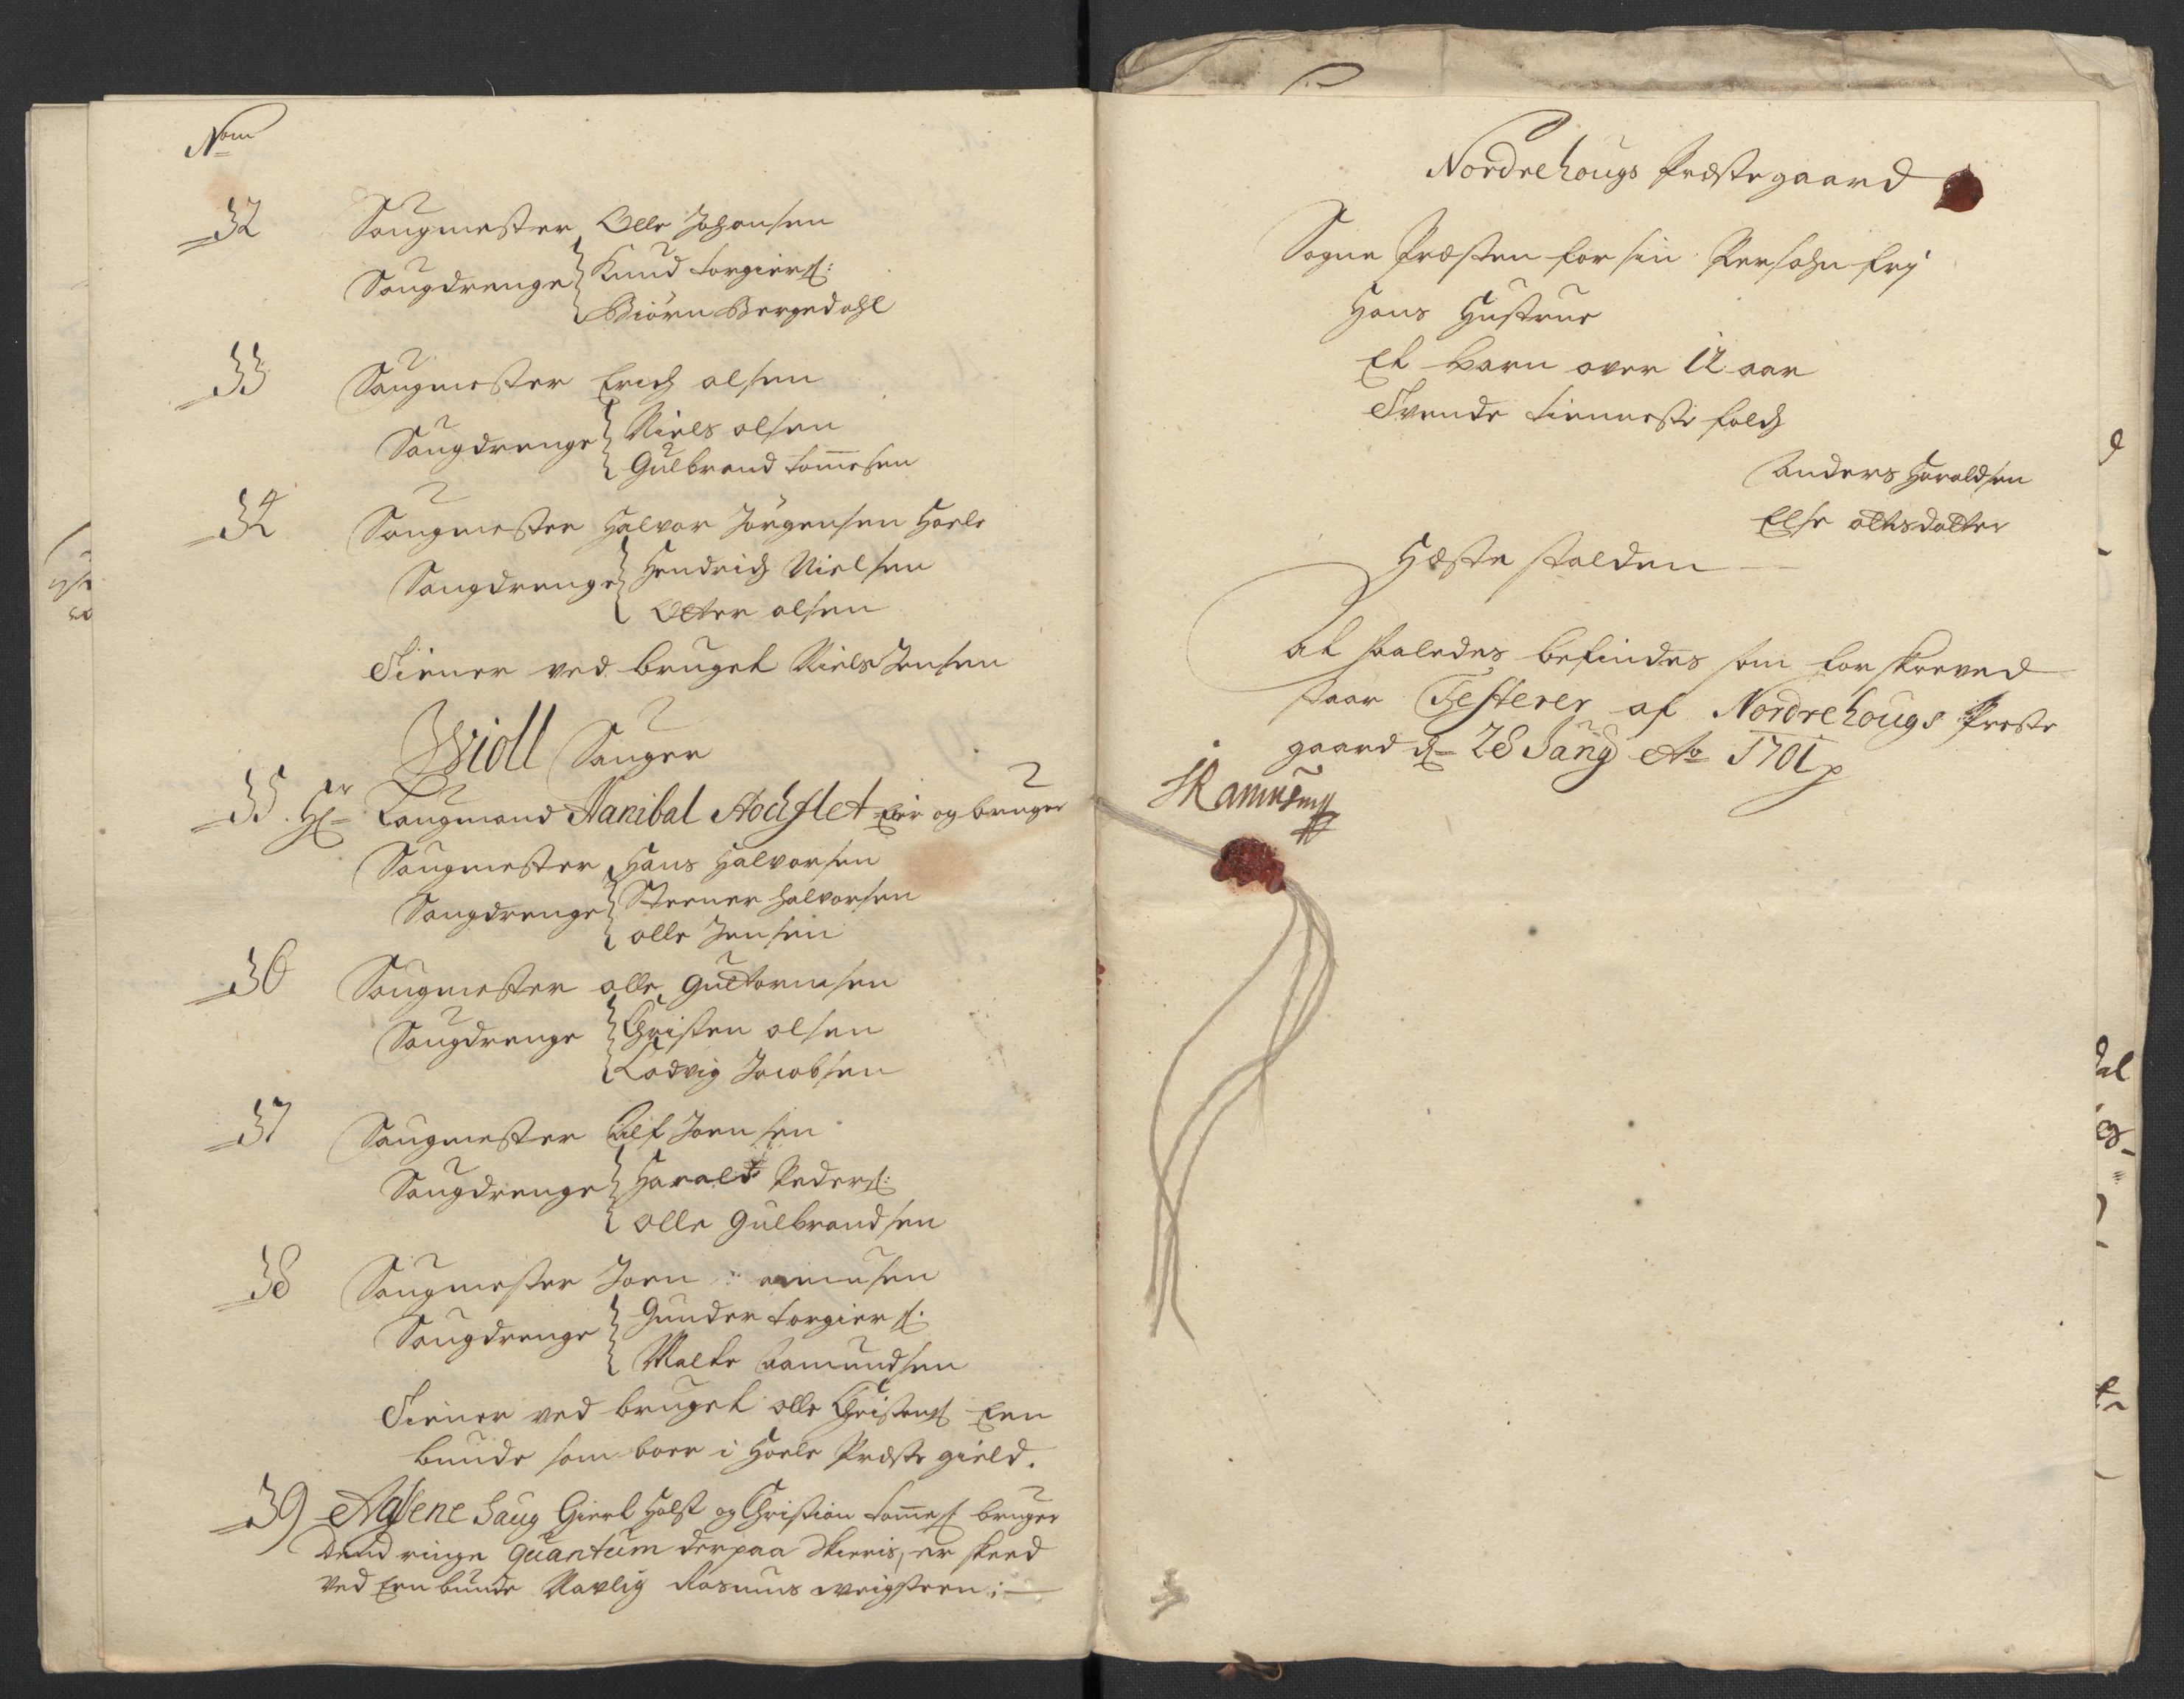 Nom
32 Saugmester Olle Johansen
Saugdrenge Knud Torgiers:
Biörn Bergedahl
33 Saugmester Erich olsen
Saugdrenge Niels olsen
Gulbrand Tom̄esen
34 Saugmester Halvor Jörgensen Hoele
Saugdrenge Hendrich Nielsen
Otter olsen
Tiener ved bruget Niels Jensen
Wioll Sauger
35. Hr Laugmand Hanibal Stochflet Eier og bruger
Saugmester Hans Halvorsen
Saugdrenge Steener halvorsen
olle Jensen
36 Saugmester olle Guttormsen
Saugdrenge Christen olsen
Lodvig Jacobsen
37 Saugmester Alf Joensen
Saugdrenge Harald Peders:
olle Gulbrandsen
38 Saugmester Joen
Saugdrenge Gunder Torgiers:
Malte Aamundsen
Tiener ved bruget olle Christens Een
bunde som boer i Hoele Præste gield.
39 Aasene Saug Giert Holst og Christian Tom̄es bruger
Dend ringe quantum derpaa skieris, er skeed
ved Een bunde Navlig Rasmus :
Nordrehougs Præstegaard
Sogne Præsten for sin Persohn frj
Hans Hustrue
Et barn over 12 aar
Tvende tienneste folch
Anders Haroldsen
Else olhsdatter
Hæste stalden
At saaledes befindes som forskreved
staar Testerer af Nordrehougs Preste
gaard d 28 Janӱ Ao 1701